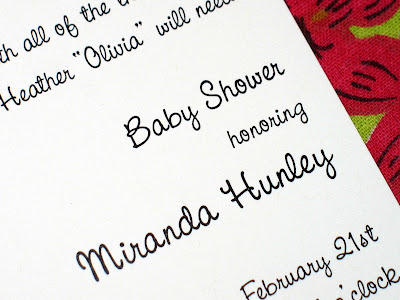 all of the
Heather "Olivia" will need
Baby Shower
honoring
Miranda Hunley
February 21st
o'clock